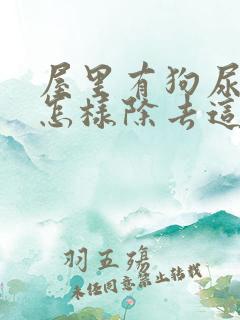 屋里有狗尿
怎樣除去這
羽五殤
未经同意禁止转载